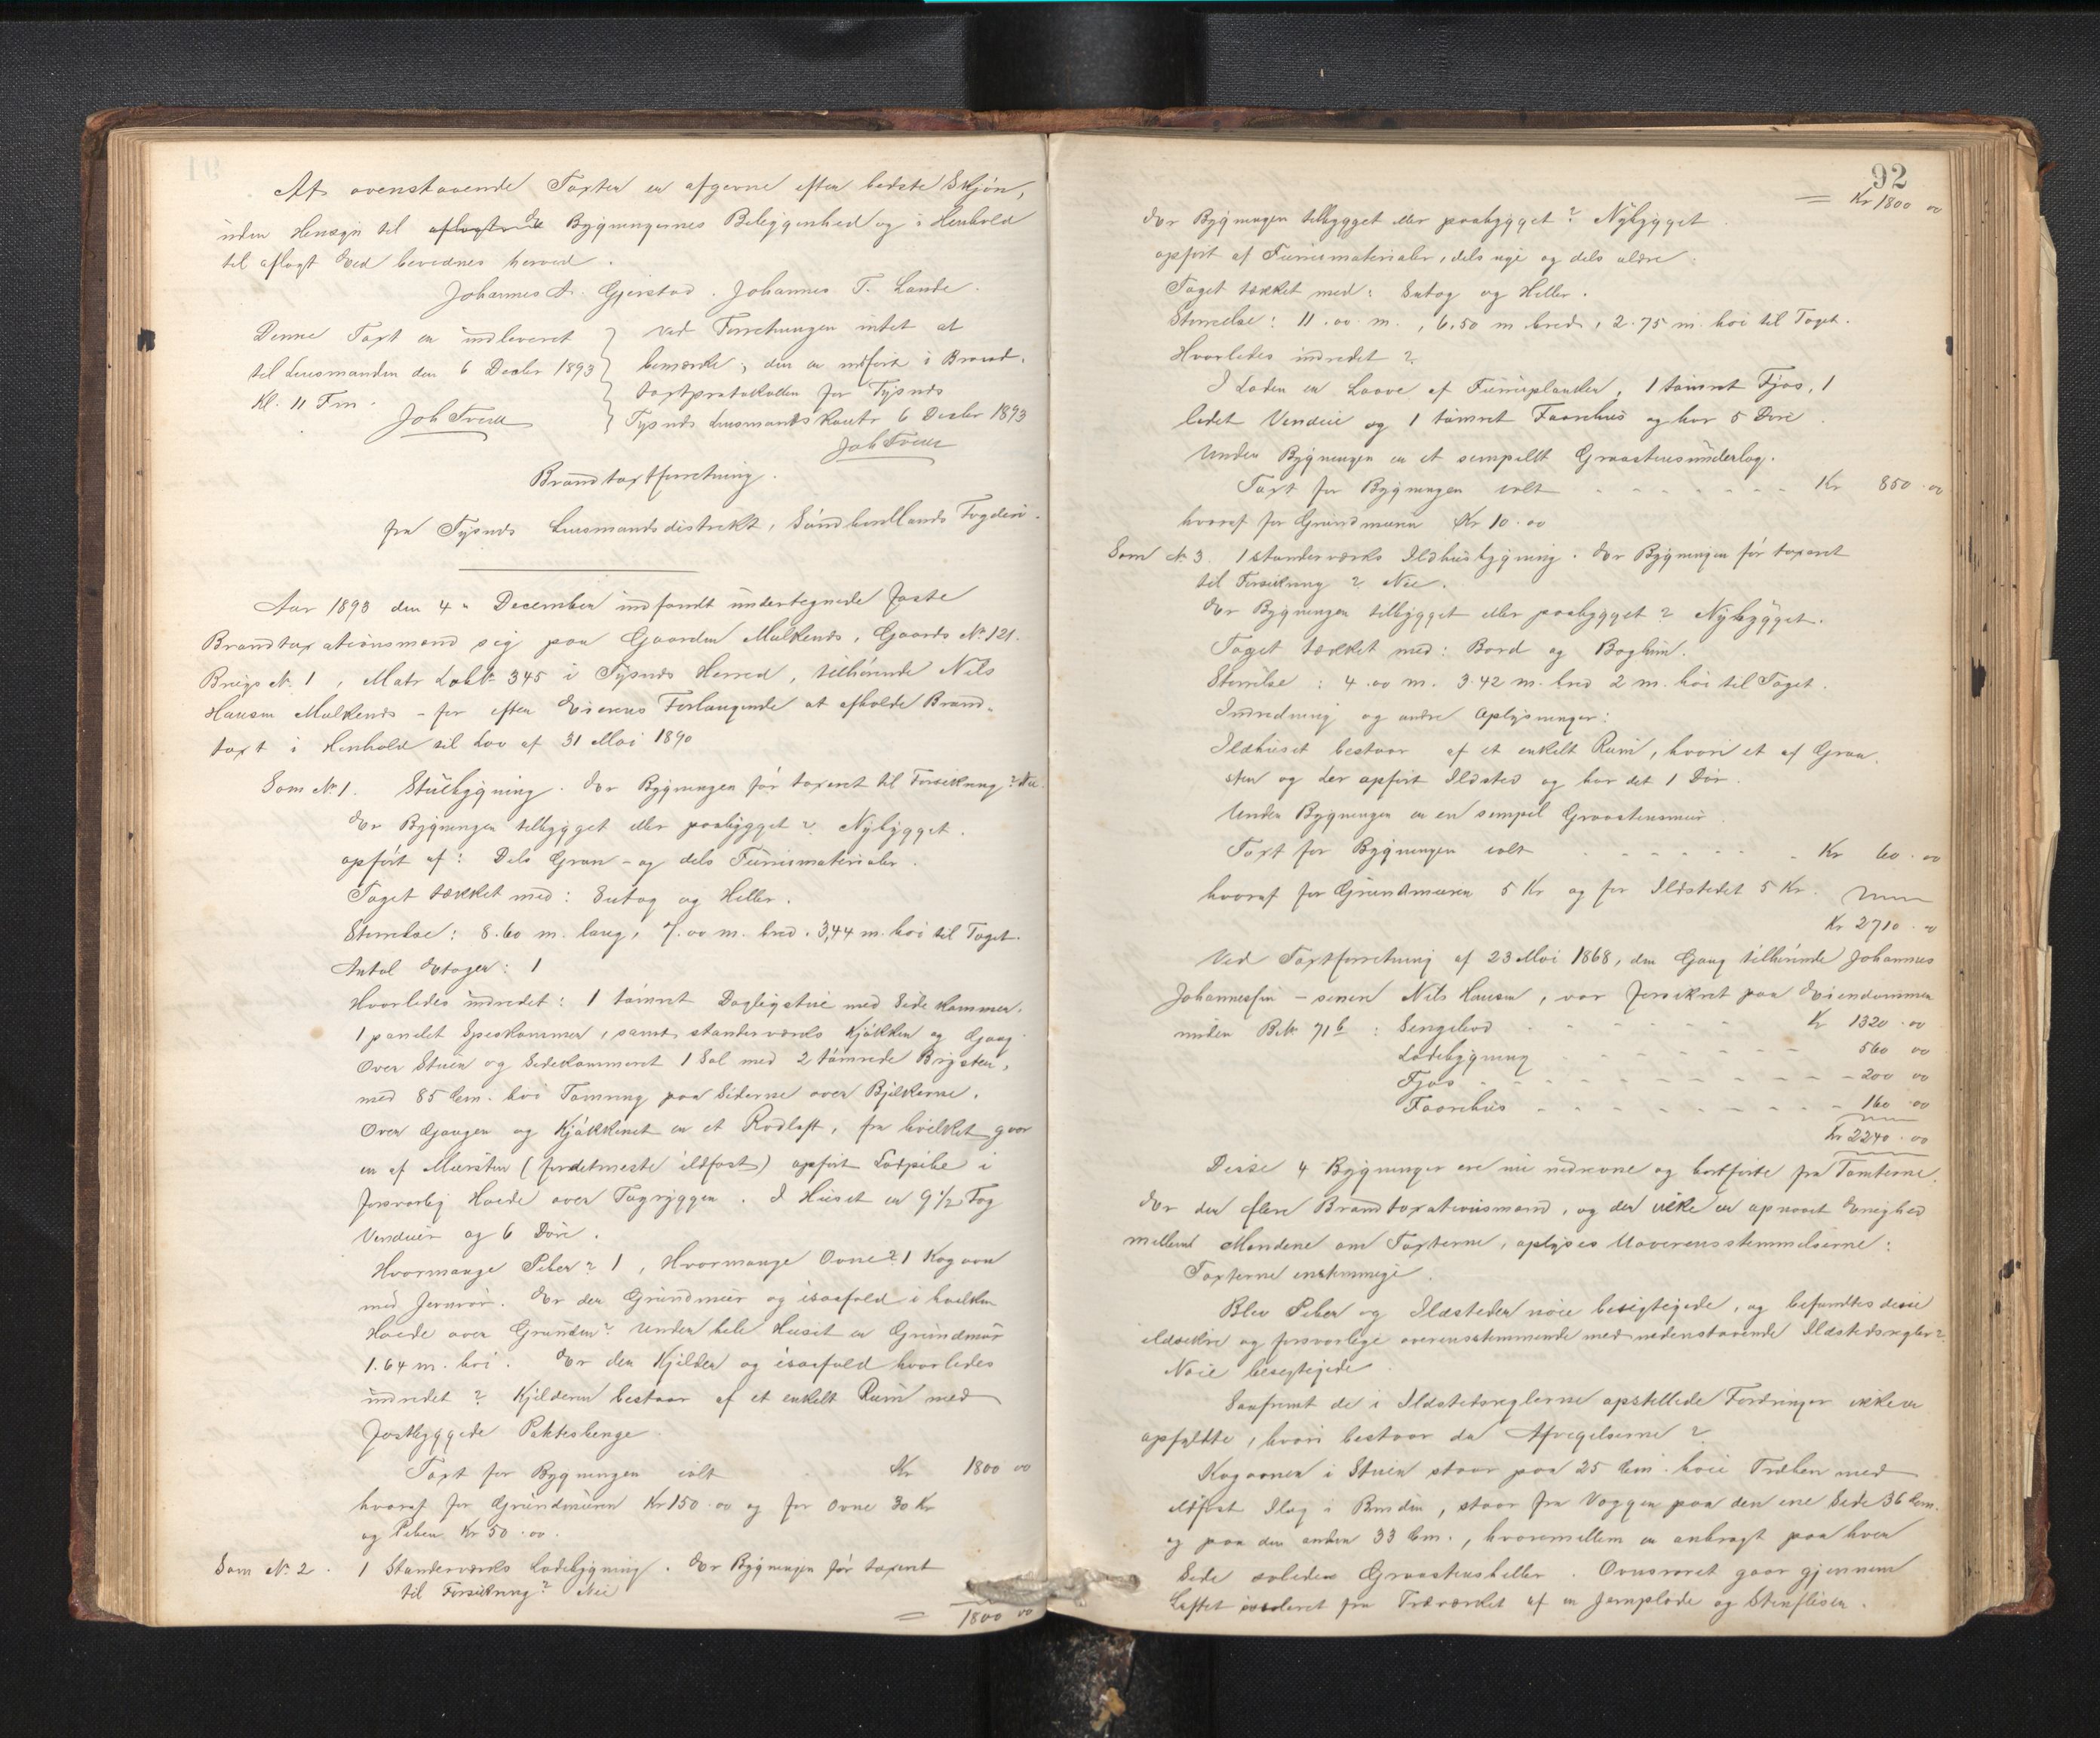 At ovenstaaende Taxter er afgivne efter bedste Skjøn,
uden Hensyn til aflagt Ed Bygningernes Beliggenhed og i Henhold
til aflagt Ed bevidnes herved.
Johannes A. Gjerstad. Johannes T. Lande.
Denne Taxt er indleveret
til Lensmanden den 6 Decbr 1893
Kl. 11 Fm.
Joh Tveit
ved Forretningen intet at
bemærke; den er indført i Brand-
taxtprotokollen for Tysnes
Tysnes Lensmandskontr 6 Decbr 1893
Joh Tveit
Brandtaxtforretning.
fra Tysnes Lensmandsdistrikt, Søndhordlands Fogderi.
Aar 1893 den 4de December indfandt undertegnede faste
Brandtaxationsmænd sig paa Gaarden Malkenes, Gaards № 121.
Brugs № 1, Matr Løb№ 345 i Tysnes Herred, tilhørende Nils
Hansen Malkenes - for efter Eierens Forlangende at afholde Brand-
taxt i Henhold til Lov af 31 Mai 1890
Som № 1. Stuebygning. Er Bygningen før taxeret til Forsikring? Nei.
Er Bygningen tilbygget eller paabygget? Nybygget.
opført af: Dels Gran- og dels Furumaterialer.
Taget tækket med: Sutag og Heller.
Størrelse: 8.60 m. lang, 7.00 m. bred. 3,44 m. høi til Taget.
Antal Etager: 1
Hvorledes indredet: 1 tømret Dagligstue med Sidekammer.
1 panelet Speskammer, samt standerværks Kjøkken og Gang.
Over Stuen og Sidekammeret 1 Sal med 2 tømrede Bryster,
med 85 Cm. høi Tømring paa Siderne over Bjelkerne.
Over Gangen og Kjøkkenet er et Rodloft, fra hvilket gaar
en af Mursten (fordetmeste ildfast) opført Lodpibe i
forsvarlig Høide over Tagryggen. I Huset er 9 1/2 Fag
Vinduer og 6 Døre.
Hvormange Piber? 1, Hvormange Ovne? 1 Kogovn
med Jernrør. Er der Grundmur og isaafald i hvilken
Høide over Grunden? Under hele Huset er Grundmur
1.64 m. høi. Er der Kjelder og isaafald hvorledes
indredet? Kjelderen bestaar af et enkelt Rum med
fastbyggede
Taxt for Bygningen ialt Kr 1800 00
hvoraf for Grundmuren Kr 150.00 og for Ovne 30 Kr
og Piben Kr 50.00.
Som № 2. 1 Standerværks Ladebygning. Er Bygningen før taxeret
til Forsikring? Nei
= 1800 00
92
= Kr 1800 00
Er Bygningen tilbygget eller paabygget? Nybygget.
opført af Furumaterialer, dels nye og dels ældre.
Taget tækket med: Sutag og Heller.
Størrelse: 11.00 m., 6.50 m bred, 2.75 m. høi til Taget.
Hvorledes indredet?
I Laden er Laave af Furuplanker, 1 tømret Fjøs, 1
ledet Vindue og 1 tømret Faarehus og har 5 Døre.
Under Bygningen er et simpelt Graastensunderlag.
Taxt for Bygningen ialt Kr 850.00
hvoraf for Grundmuren Kr 10.00
Som № 3. 1 standerværks Ildhusbygning. Er Bygningen før taxeret
til Forsikring? Nei.
Er Bygningen tilbygget eller paabygget? Nybygget.
Taget tækket med: Bord og
Størrelse: 4.00 m. 3.42 m. bred 2 m. høi til Taget.
Indredning og andre Oplysninger:
Ildhuset bestaar af et enkelt Rum, hvori et af Graa-
sten og Ler opført Ildsted og har det 1 Dør.
Under Bygningen er en simpel Graastensmur
Taxt for Bygningen ialt Kr 60.00
hvoraf for Grundmuren 5 Kr og for Ildstedet 5 Kr.
Kr 2710.00
Ved Taxtforretning af 23 Mai 1868, den Gang tilhørende Johannes
Johannessen - senere Nils Hansen, var forsikret paa Eiendommen
under B№ 71b: Sengebod Kr 1320.00
Ladebygning 560 00
Fjøs 200 00
Faarehus 160.00
Kr 2240.00
Disse 4 Bygninger ere nu nedrevne og bortførte fra Tomterne.
Er der flere Brandtaxationsmænd, og der ikke er opnaaet Enighed
mellem Mændene om Taxterne, oplyses Uoverensstemmelserne:
Taxterne enstemmige.
Blev Piber og Ildsteder nøie besigtigede, og befandtes disse
ildsikre og forsvarlige overensstemmende med nedenstaaende Ildstedsregler?
Nøie besigtigede
Saafremt de i Ildstedsreglerne opstillede Fordringer ikke er
opfyldte, hvori bestaar da Afvigelserne?
Kogovnen i Stuen staar paa 25 Cm. høie Træben med
ildfast Ilag i Bunden, staar fra Væggen paa den ene Side 36 Cm.
og paa den anden 33 Cm., hvoremellem er anbragt paa hver
Side solide Graastensheller. Ovnsrøret gaar gjennem
Loftet isoleret fra Træværket af en Jernplade og Stenfliser.